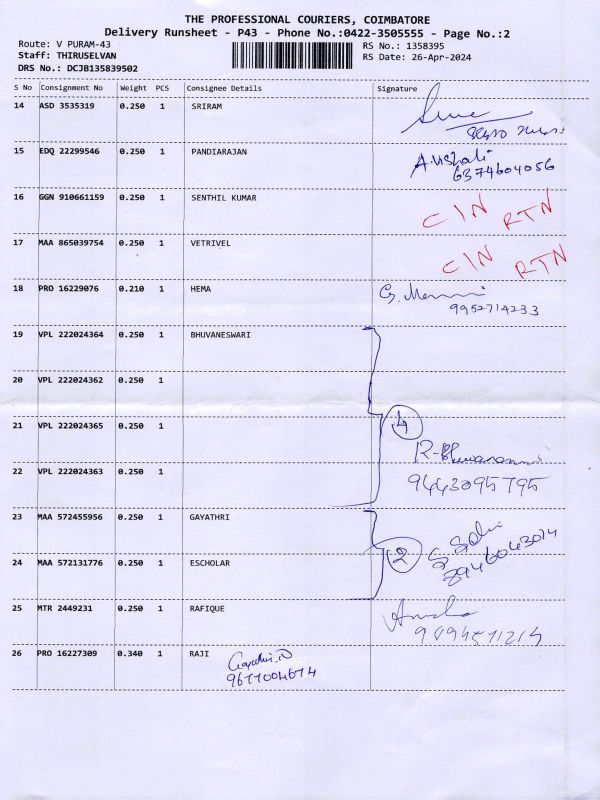 THE PROFESSIONAL COURIERS, COIMBATORE
Delivery Runsheet - P43 - Phone No.:0422-3505555 - Page No.:2
Route: V PURAM-43
RS No.: 1358395
Staff: THIRUSELVAN
RS Date: 26-Apr-2024
DRS No.: DCJB135839502
S No Consignment No Weight PCS Consignee Details Signature
14 ASD 3535319 0.250 1 SRIRAM
15 EDQ 22299546 0.250 1 PANDIARAJAN
6374604056
16 GGN 910661159 0.250 1 SENTHIL KUMAR CIN RTN
17 MAA 865039754 0.250 1 VETRIVEL CIN RTN
18 PRO 16229076 0.210 1 HEMA
9952714233
19 VPL 222024364 0.250 1 BHUVANESWARI
20 VPL 222024362 0.250 1
21 VPL 222024365 0.250 1 4
22 VPL 222024363 0.250 1
9443095795
23 MAA 572455956 0.250 1 GAYATHRI
24 MAA 572131776 0.250 1 ESCHOLAR 2
25 MTR 2449231 0.250 1 RAFIQUE
26 PRO 16227309 0.340 1 RAJI
9677004674